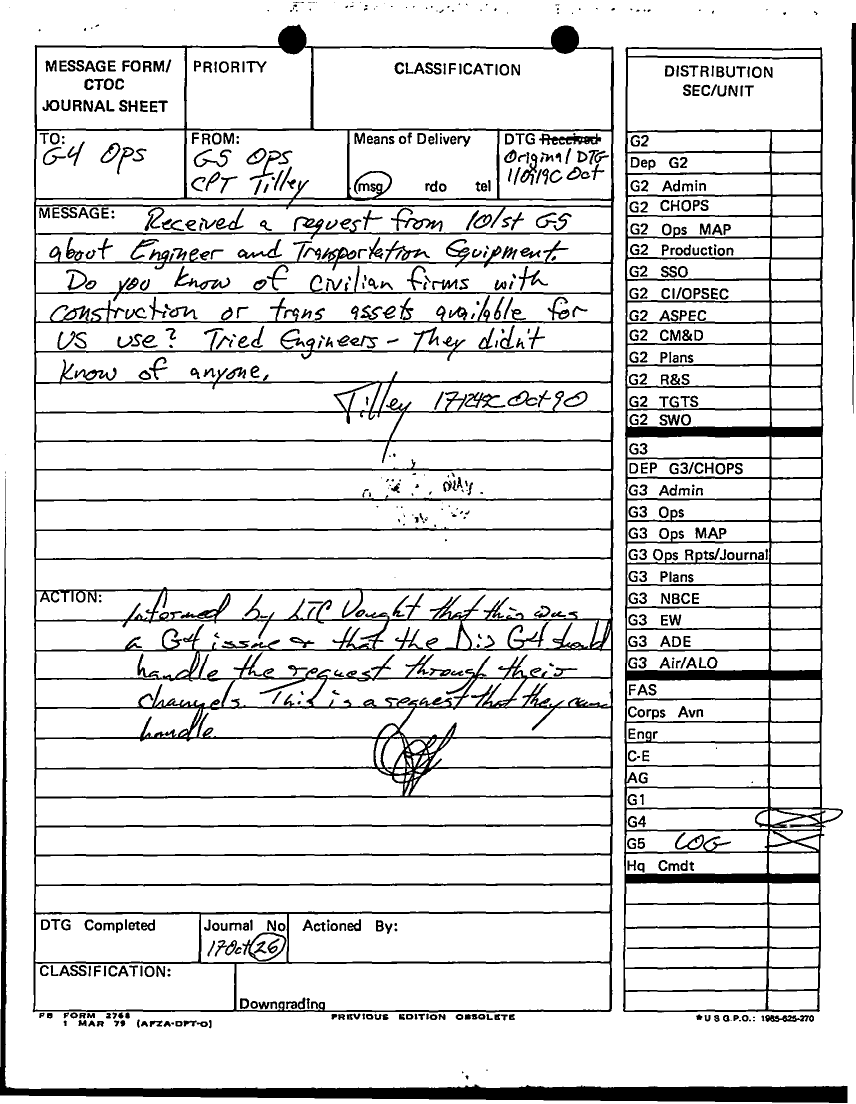 MESSAGE FORM/
CTOC
JOURNAL SHEET
PRIORITY
CLASSIFICATION
TO:
G-4 OPS
FROM:
G-5 OPS
CPT Tilley
Means of Delivery
msg rdo tel
DTG Received
Original DTG
MESSAGE: Received a request from 101st G5
about Engineer and Transportation Equipment.
Do you know of civilian firms with
construction or trans assets available for
US use? Tried Engineers - They didn't
know of anyone.
Tilley 171242C Oct 90
ACTION:
Informed by LTC Vought that this was
a G4 issue & that the Div G4 should
handle the request through their
channels. This is a request that they can
handle
DTG Completed
Journal No
17Oct 26
Actioned By:
CLASSIFICATION:
Downgrading
FB FORM 2768
1 MAR 79 (AFZA-DPT-O)
PREVIOUS EDITION OBSOLETE
DISTRIBUTION
SEC/UNIT
G2
Dep G2
G2 Admin
G2 CHOPS
G2 Ops MAP
G2 Production
G2 SSO
G2 CI/OPSEC
G2 ASPEC
G2 CM&D
G2 Plans
G2 R&S
G2 TGTS
G2 SWO
G3
DEP G3/CHOPS
G3 Admin
G3 Ops
G3 Ops MAP
G3 Ops Rpts/Journal
G3 Plans
G3 NBCE
G3 EW
G3 ADE
G3 Air/ALO
FAS
Corps Avn
Engr
C-E
AG
G1
G4
G5 LOG
Hq Cmdt
*U S G.P.O.: 1985-625-270